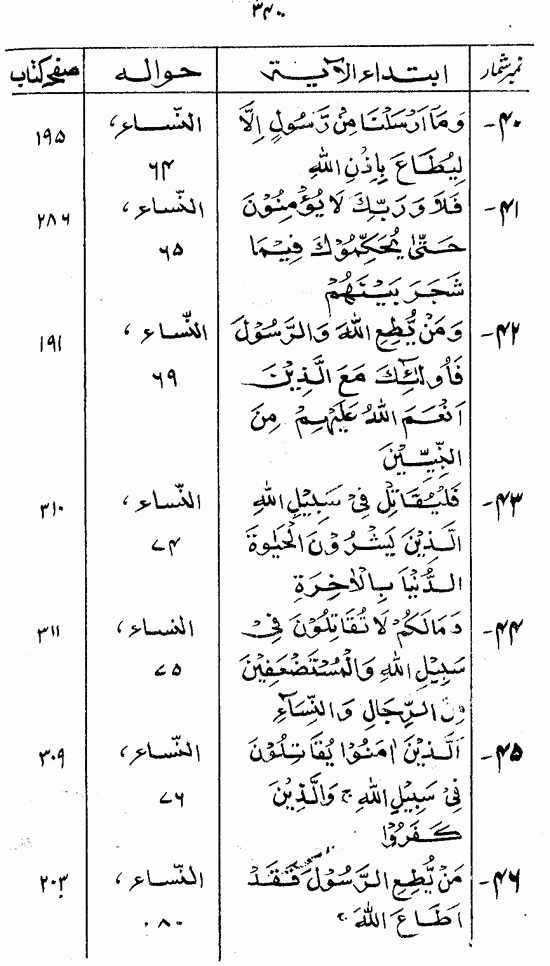 ۳۴۰
نمبر شمار | ابتداء الآیۃ | حوالہ | صفحہ کتاب
۴۰- وَمَآ اَرْسَلْنَا مِنْ رَّسُوْلٍ اِلَّا النّساء، ۱۹۵
لِیُطَاعَ بِاِذْنِ اللّٰهِ ۶۴
۴۱- فَلَا وَرَبِّكَ لَا یُؤْمِنُوْنَ النّساء، ۲۸۶
حَتّٰی یُحَكِّمُوْكَ فِیْمَا ۶۵
شَجَرَ بَیْنَهُمْ
۴۲- وَمَنْ یُّطِعِ اللّٰهَ وَالرَّسُوْلَ النّساء، ۱۹۱
فَاُولٰٓئِكَ مَعَ الَّذِیْنَ ۶۹
اَنْعَمَ اللّٰهُ عَلَیْهِمْ مِنَ
النَّبِیِّیْنَ
۴۳- فَلْیُقَاتِلْ فِیْ سَبِیْلِ اللّٰهِ النّساء، ۳۱۰
الَّذِیْنَ یَشْرُوْنَ الْحَیٰوةَ ۷۴
الدُّنْیَا بِالْاٰخِرَةِ
۴۴- وَمَالَكُمْ لَا تُقَاتِلُوْنَ فِیْ النساء، ۳۱۱
سَبِیْلِ اللّٰهِ وَالْمُسْتَضْعَفِیْنَ ۷۵
مِنَ الرِّجَالِ وَالنِّسَآءِ
۴۵- اَلَّذِیْنَ اٰمَنُوْا یُقَاتِلُوْنَ النّساء، ۳۰۹
فِیْ سَبِیْلِ اللّٰهِ ج وَالَّذِیْنَ ۷۶
كَفَرُوْا
۴۶- مَنْ یُّطِعِ الرَّسُوْلَ فَقَدْ النّساء، ۲۰۳
اَطَاعَ اللّٰهَ ج ۸۰